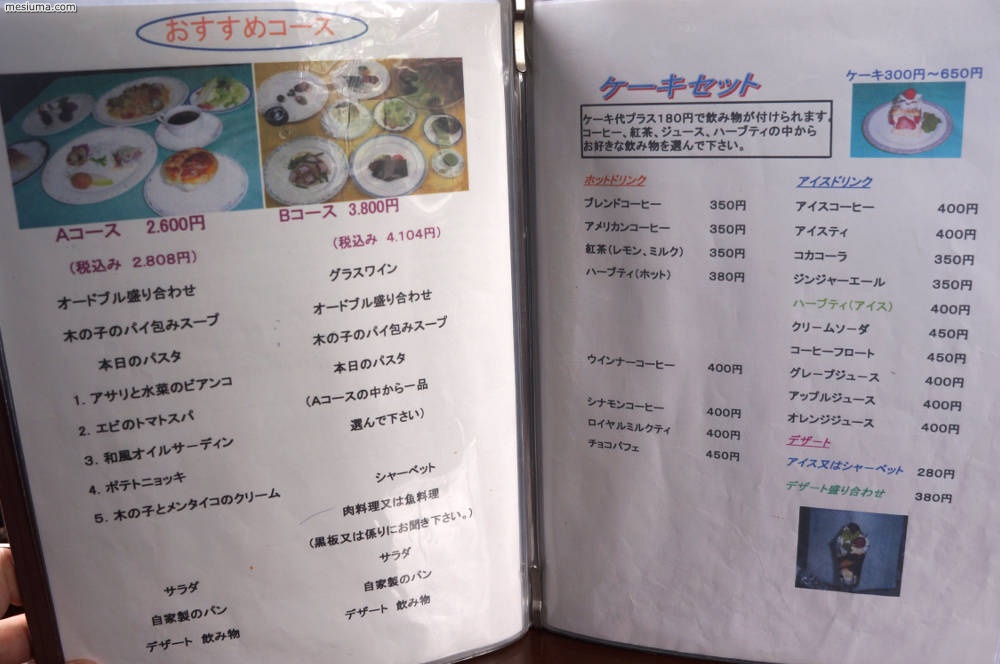 mesiuma.com
おすすめコース
Aコース 2.600円
(税込み 2.808円)
オードブル盛り合わせ
木の子のパイ包みスープ
本日のパスタ
1. アサリと水菜のビアンコ
2. エビのトマトスパ
3. 和風オイルサーディン
4. ポテトニョッキ
5. 木の子とメンタイコのクリーム
サラダ
自家製のパン
デザート 飲み物
Bコース 3.800円
(税込み 4.104円)
グラスワイン
オードブル盛り合わせ
木の子のパイ包みスープ
本日のパスタ
(Aコースの中から一品
選んで下さい)
シャーベット
肉料理又は魚料理
(黒板又は係りにお聞き下さい。)
サラダ
自家製のパン
デザート 飲み物
ケーキセット
ケーキ300円～650円
ケーキ代プラス180円で飲み物が付けられます。
コーヒー、紅茶、ジュース、ハーブティの中から
お好きな飲み物を選んで下さい。
ホットドリンク
ブレンドコーヒー 350円
アメリカンコーヒー 350円
紅茶(レモン、ミルク) 350円
ハーブティ(ホット) 380円
ウインナーコーヒー 400円
シナモンコーヒー 400円
ロイヤルミルクティ 400円
チョコパフェ 450円
アイスドリンク
アイスコーヒー 400円
アイスティ 400円
コカコーラ 350円
ジンジャーエール 350円
ハーブティ(アイス) 400円
クリームソーダ 450円
コーヒーフロート 450円
グレープジュース 400円
アップルジュース 400円
オレンジジュース 400円
デザート
アイス又はシャーベット 280円
デザート盛り合わせ 380円